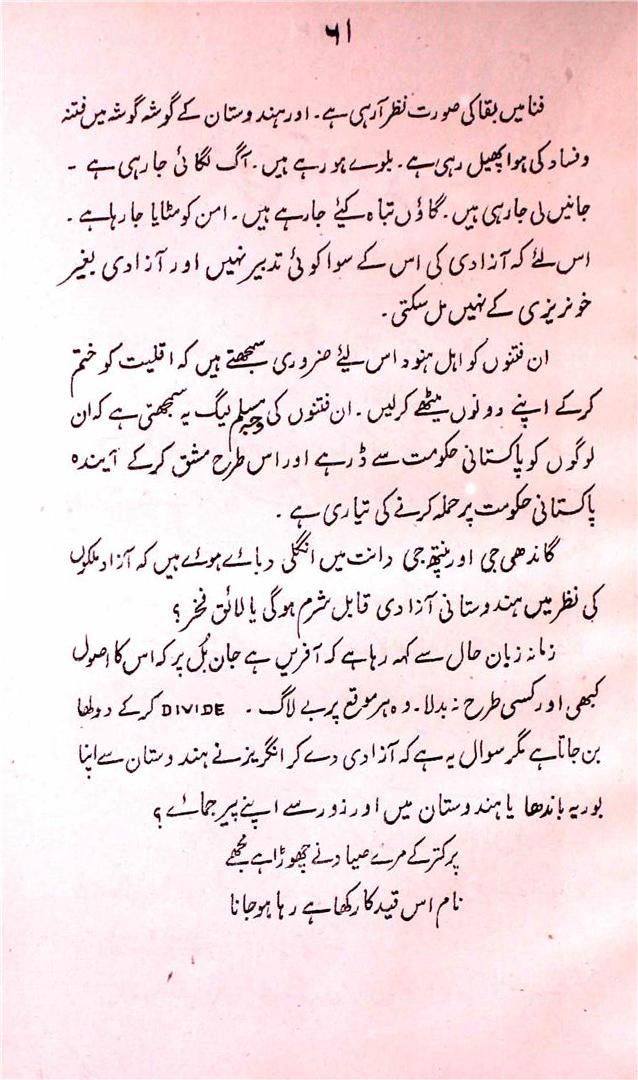 ۶۱
فنا میں بقا کی صورت نظر آرہی ہے۔ اور ہندوستان کے گوشہ گوشہ میں فتنہ
و فساد کی ہوا پھیل رہی ہے۔ بلوے ہو رہے ہیں۔ آگ لگائی جارہی ہے ۔
جانیں لی جارہی ہیں۔ گاؤں تباہ کیئے جارہے ہیں۔ امن کو مٹایا جارہا ہے ۔
اس لئے کہ آزادی کی اس کے سوا کوئی تدبیر نہیں اور آزادی بغیر
خونریزی کے نہیں مل سکتی۔
ان فتنوں کو اہل ہنود اس لیئے ضروری سمجھتے ہیں کہ اقلیت کو ختم
کرکے اپنے دونوں میٹھے کرلیں۔ ان فتنوں کی وجہ مسلم لیگ یہ سمجھتی ہے کہ ان
لوگوں کو پاکستانی حکومت سے ڈر ہے اور اس طرح مشق کرکے آیندہ
پاکستانی حکومت پر حملہ کرنے کی تیاری ہے ۔
گاندھی جی اور پنتھ جی دانت میں انگلی دبائے ہوئے ہیں کہ آزاد ملکوں
کی نظر میں ہندوستانی آزادی قابل شرم ہوگی یا لائق فخر؟
زمانہ زبان حال سے کہہ رہا ہے کہ آفریں ہے جان بُل پر کہ اس کا اصول
کبھی اور کسی طرح نہ بدلا۔ وہ ہر موقع پر بے لاگ ۔ DIVIDE کرکے دولھا
بن جاتا ہے مگر سوال یہ ہے کہ آزادی دے کر انگریز نے ہندوستان سے اپنا
بوریہ باندھا یا ہندوستان میں اور زور سے اپنے پیر جمائے؟
پر کتر کے مرے صیاد نے چھوڑا ہے مجھے
نام اس قید کا رکھا ہے رہا ہو جانا